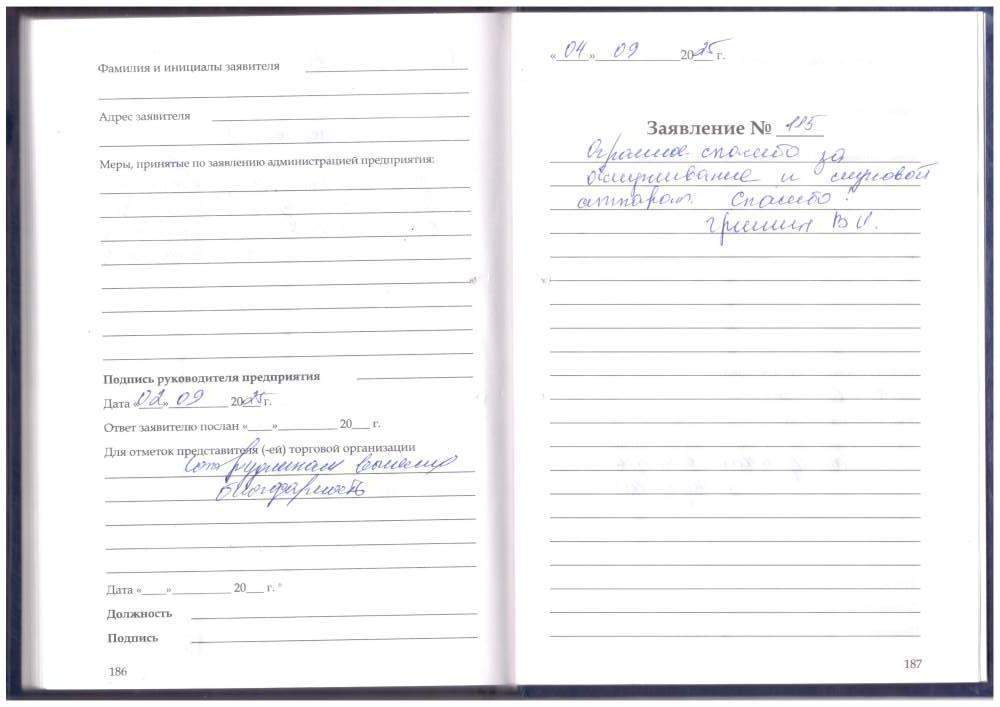 Фамилия и инициалы заявителя
Адрес заявителя
Меры, принятые по заявлению администрацией предприятия:
Подпись руководителя предприятия
Дата «02» 09 2025 г.
Ответ заявителю послан «____»__________ 20___ г.
Для отметок представителя (-ей) торговой организации
Сотрудникам вынести
благодарность
Дата «____»__________ 20___ г.
Должность
Подпись
186
«04» 09 2025 г.
Заявление № 115
Огромное спасибо за
обслуживание и слуховой
аппарат. Спасибо!
В И.
187